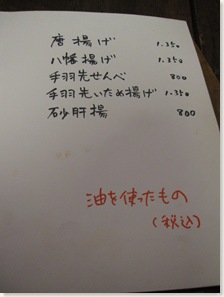 唐揚げ 1.350
八幡揚げ 1.350
手羽先せんべ 800
手羽先いため揚げ 1.350
砂肝揚 800
油を使ったもの
(税込)